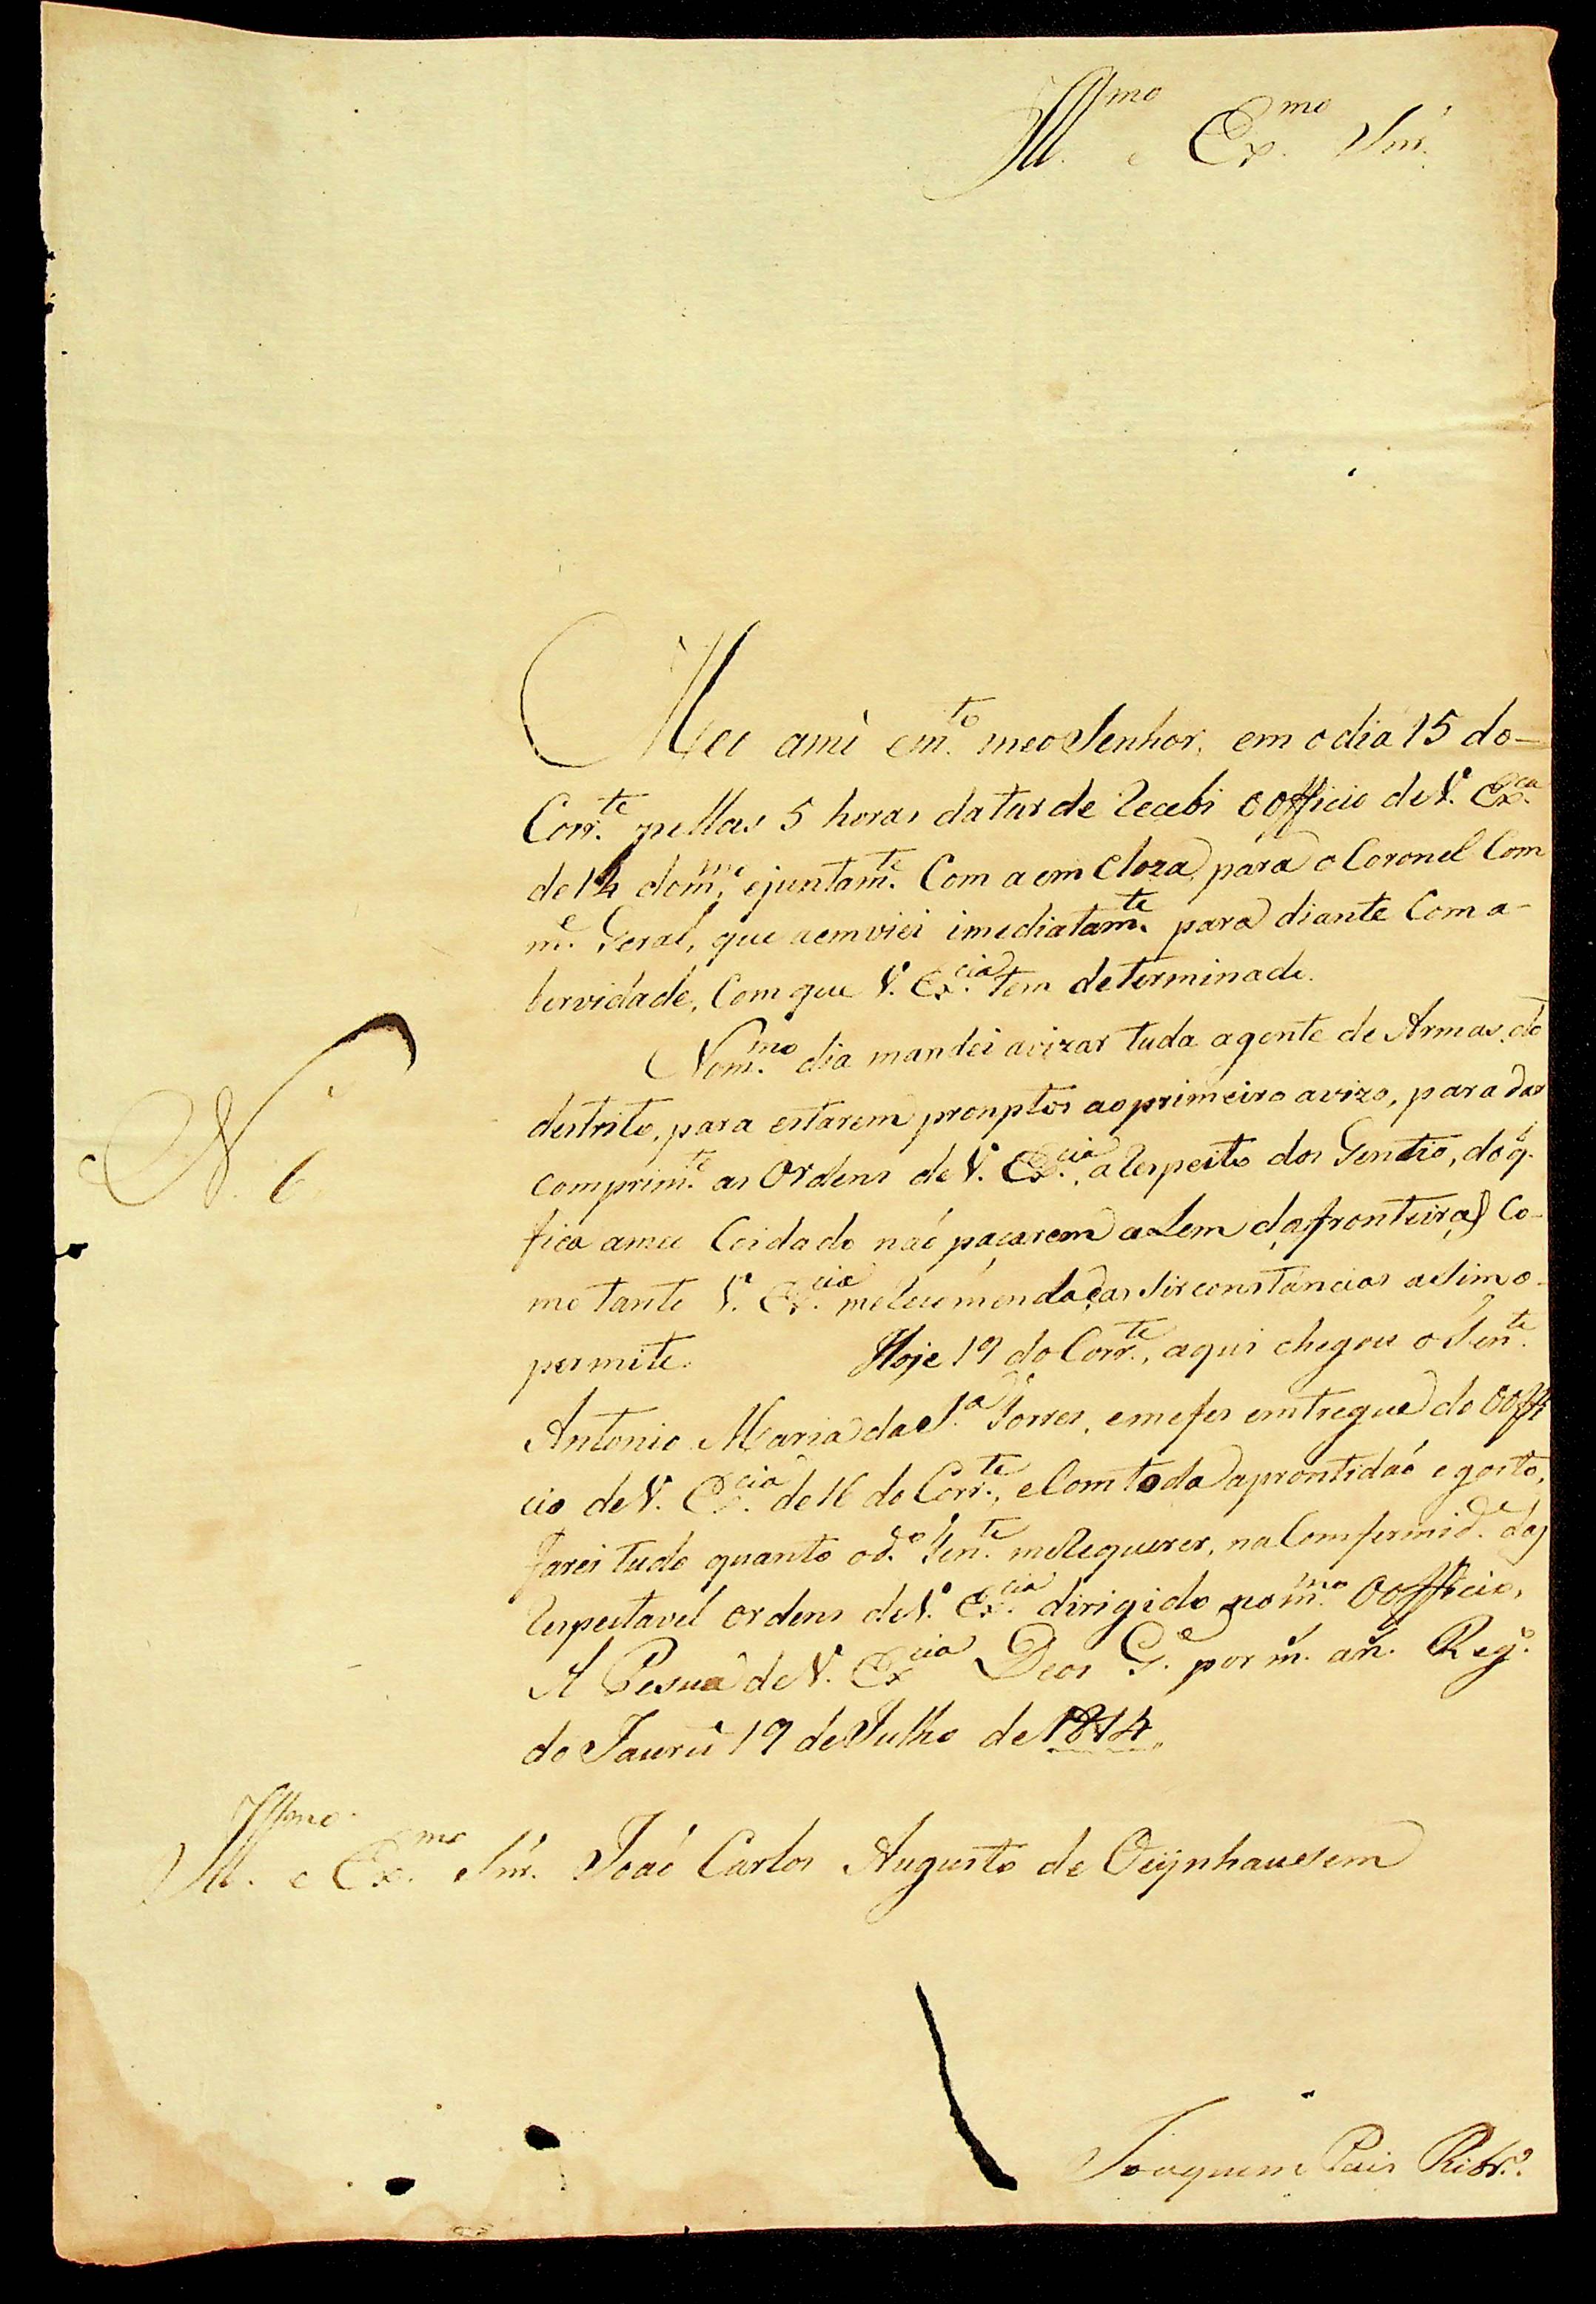 Ill.mo e Ex.mo Snr.
Meu ami e m.to meo Senhor, em o dia 15 do
Corr.te pellas 5 horas da tarde Recebi o officio de V. Ex.ca
de 14 do m.mo, e juntam.te Com a em Cloza para o Coronel Com
m.e Geral, que a emviei imediatam.te para diante Com a
bervidade, Com que V. Ex.cia tem determinado.
No m.mo dia mandei avizar tuda a gente de Armas, do
destrito, para estarem promptos ao primeiro avizo, para dar
comprim.to as Ordens de V. Ex.cia, a Respeito dos Gentio, do q.
fica a meu Coidado não paçarem a Lem da fronteira, Co-
mo tanto V. Ex.cia me Recomenda, e as Sirconstancias asim o
permite. Hoje 19 do Corr.te, aqui chegou o Ten.te
Antonio Maria da S.a Torres, e me fes emtregue do Ooffi
cio de V. Ex.cia de 16 do Corr.te, e Com toda a prontidaõ e gosto,
farei tudo quanto o d.o Ten.te me Requerer, na Comformid.e das
Respeitavel ordens de V. Ex.cia dirigido no m.mo Oofficio,
A Pesua de V. Ex.cia Deos G.e por m.s an.s Reg.o
do Jaurú 19 de Julho de 1814
N. 6
Ill.mo e Ex.mo Snr. Joaõ Carlos Augusto de Oeynhausem
Joaquim Pais Ribr.o